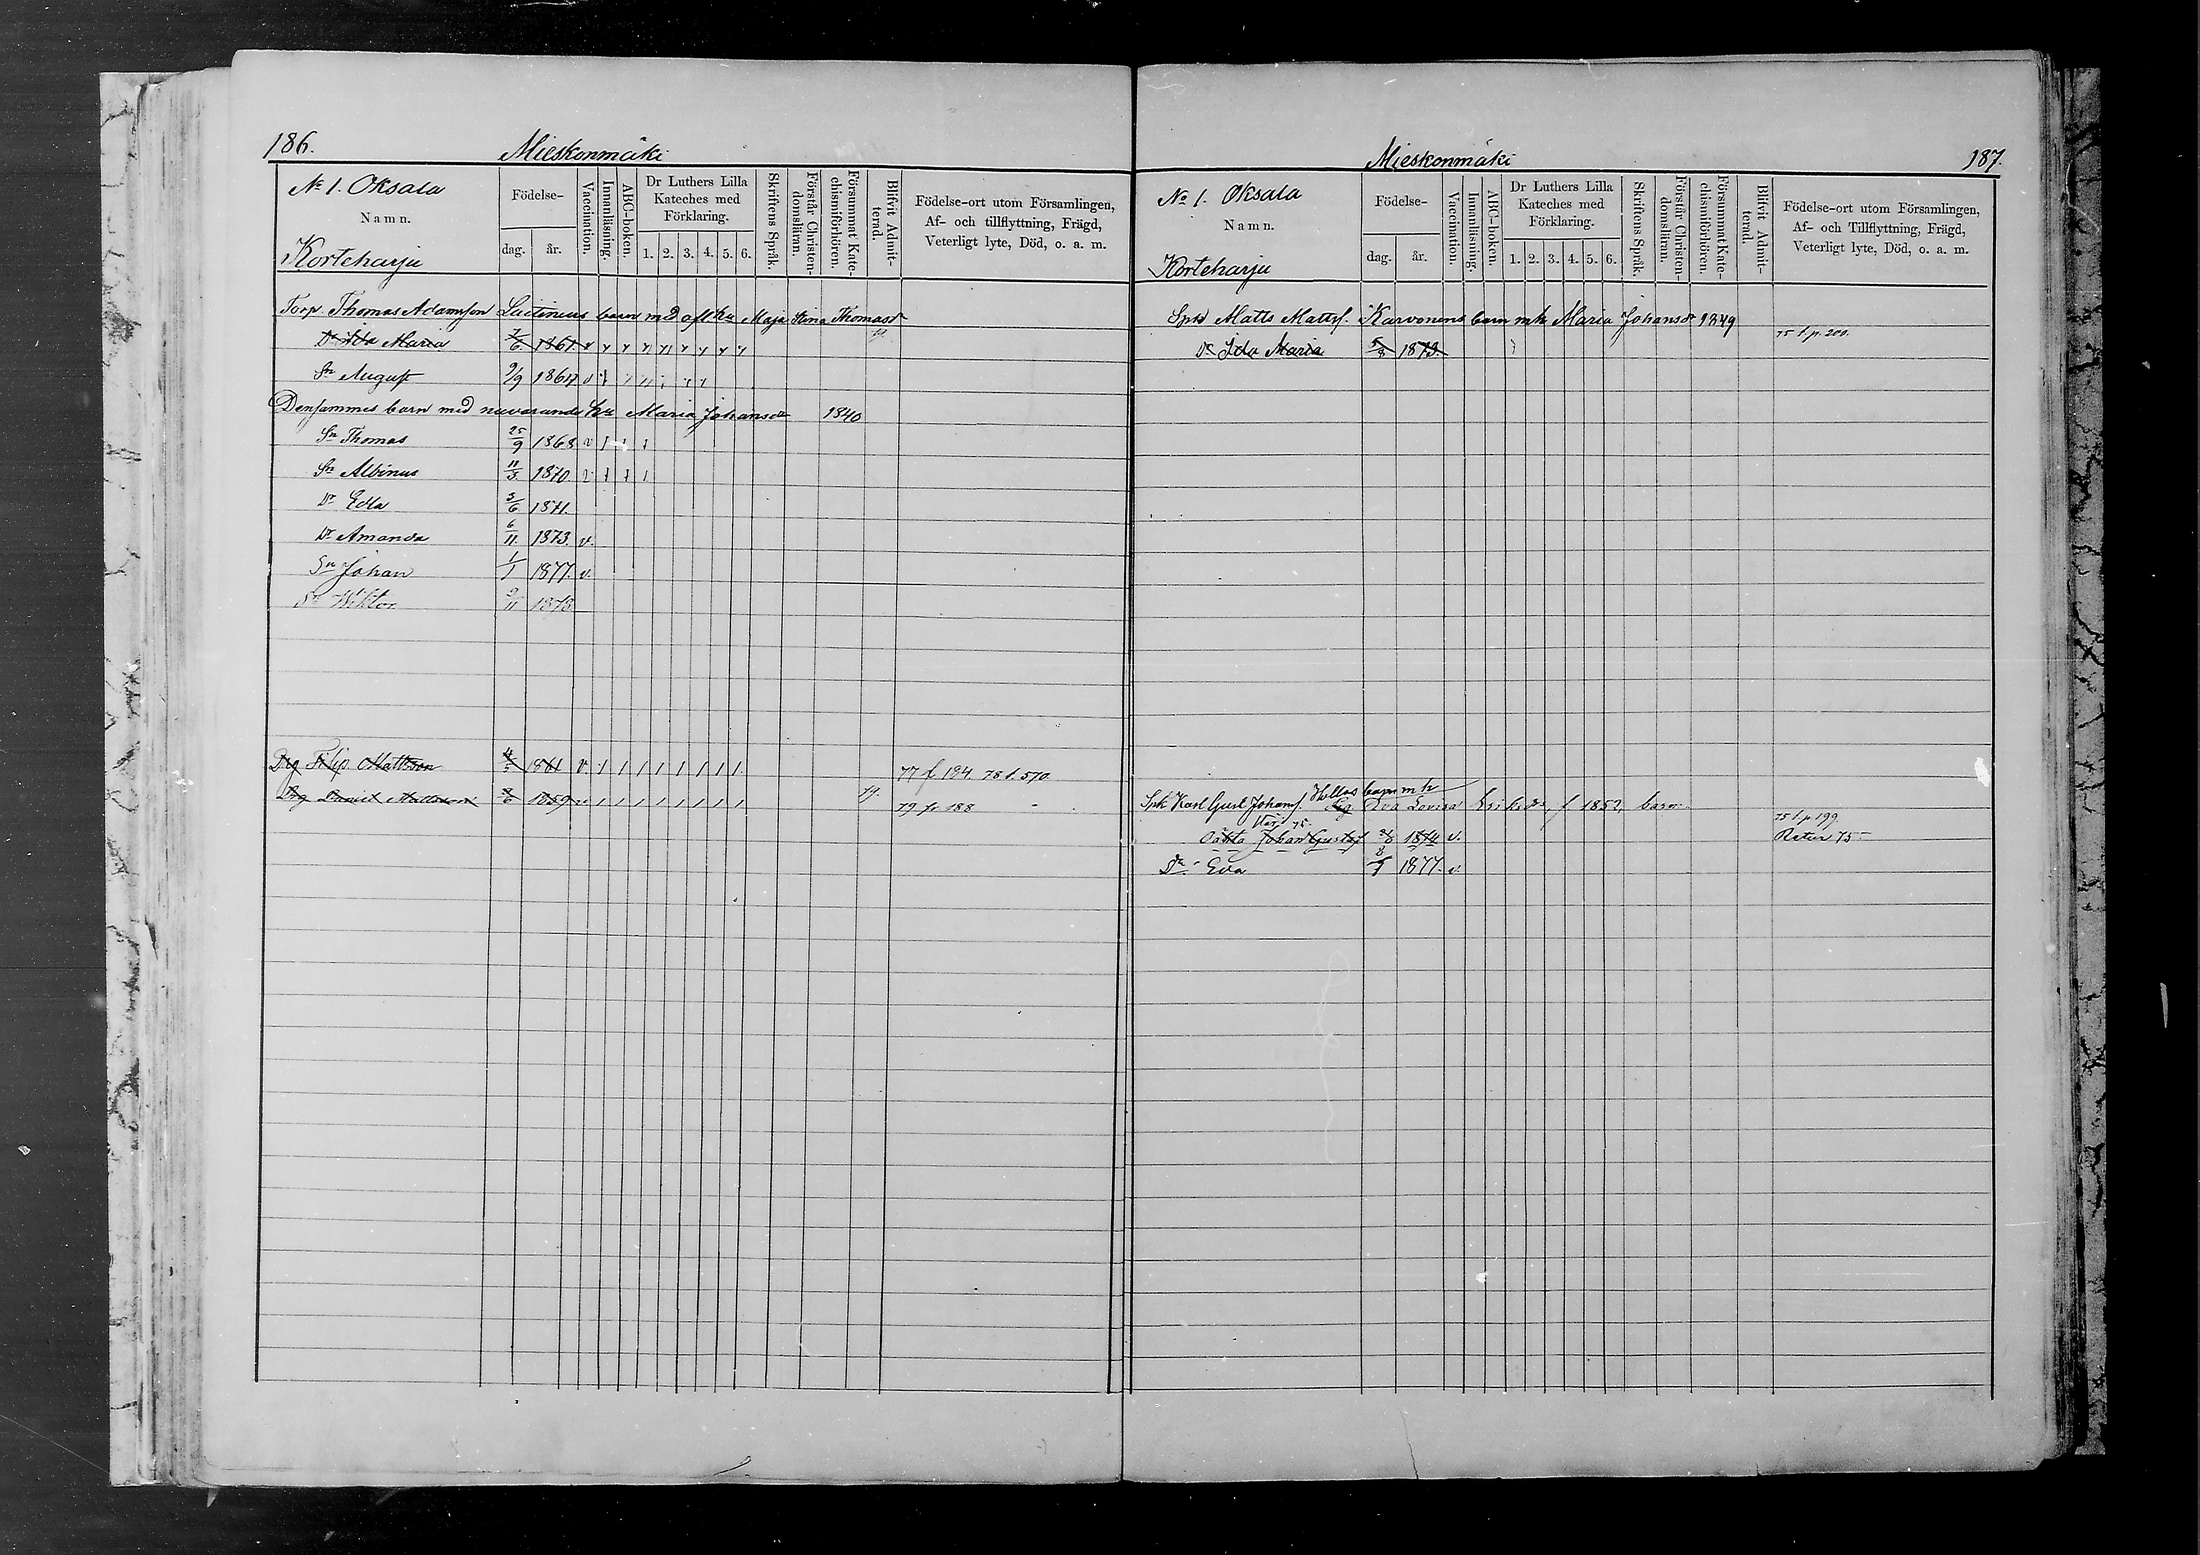 186.
Mieskonmäki
No 1. Oksala
Namn.
Korteharju
Födelse-
dag.
år.
Vaccination.
Innanläsning.
ABC-boken.
Dr Luthers Lilla
Kateches med
Förklaring.
1. 2. 3. 4. 5. 6.
Skriftens Språk.
Förstår Christen-
domsläran.
Försummat Kate-
chismiförhören.
Blifvit Admit-
terad.
Födelse-ort utom Församlingen,
Af- och tillflyttning, Frägd,
Veterligt lyte, Död, o. a. m.
Torp. Thomas Adamsson barn med afl. Hu Maja Stina Thomasdr
Dr Ida Maria 7/6. 1861. v
Sn August 9/9 1864 v
Densammes barn med nuvarande hu Maria Johansdr 1840
Sn Thomas 25/9 1868 v
Sn Albinus 11/3. 1870. v
Dr Edla 3/6 1871.
Dr Amanda 6/11. 1873. v.
Sn Johan 1/1 1877. v.
Sn Wiktor 9/11 1878
Drg Filip Mattsson 4/5 1861 v. 77 f. 194. 78 f. 570
Drg Daniel Mattsson 3/6 1859 v. 79. 79 fr 188
Mieskonmäki
187.
No 1. Oksala
Namn.
Korteharju
Födelse-
dag.
år.
Vaccination.
Innanläsning.
ABC-boken.
Dr Luthers Lilla
Kateches med
Förklaring.
1. 2. 3. 4. 5. 6.
Skriftens Språk.
Förstår Christen-
domsläran.
Försummat Kate-
chismiförhören.
Blifvit Admit-
terad.
Födelse-ort utom Församlingen,
Af- och Tillflyttning, Frägd,
Veterligt lyte, Död, o. a. m.
Sphd Matts Mattss. Karvonens barn mh Maria Johansdr 1849
Dr Ida Maria 5/8 1873. 75 t. p. 200.
Hollas barn m h
Sph Karl Gust Johanss. Eva Lovisa Eriksdr f 1852, barn
75 t. p 199
Oäkta Johan Gustaf 1874 v. Retur 75
Dr Eva 1877. v.